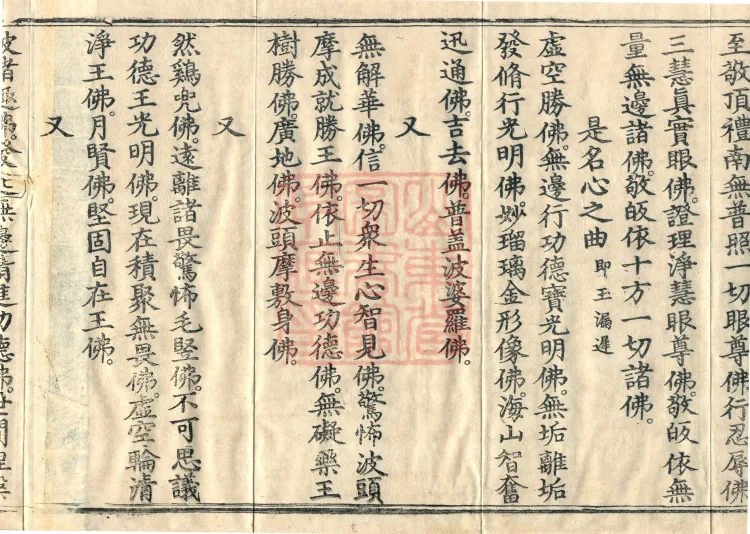 至敬頂禮南無普照一切眼尊佛行忍辱佛
三慧眞實眼佛。證理淨慧眼尊佛。敬皈依無
量無邊諸佛。敬皈依十方一切諸佛。
是名心之曲 即玉漏遲
虛空勝佛。無邊行功德寶光明佛。無垢離垢
發脩行光明佛。妙瑠璃金形像佛。海山智奮
迅通佛。吉去佛。普盖波婆羅佛。
又
無解華佛。信一切衆生心智見佛。驚怖波頭
摩成就勝王佛。依止無邊功德佛。無礙藥王
樹勝佛。廣地佛。波頭摩敷身佛。
又
然鷄兜佛。遠離諸畏驚怖毛竪佛。不可思議
功德王光明佛。現在積聚無畏佛。虛空輪清
淨王佛。月賢佛。堅固自在王佛。
又
無邊精進功德佛。世間